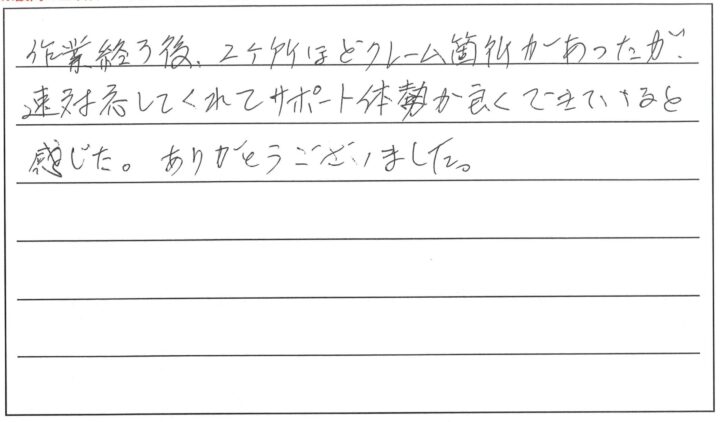 作業終了後、2ヶ所ほどクレーム箇所があったが、
速対応してくれてサポート体勢が良くできていると
感じた。ありがとうございました。